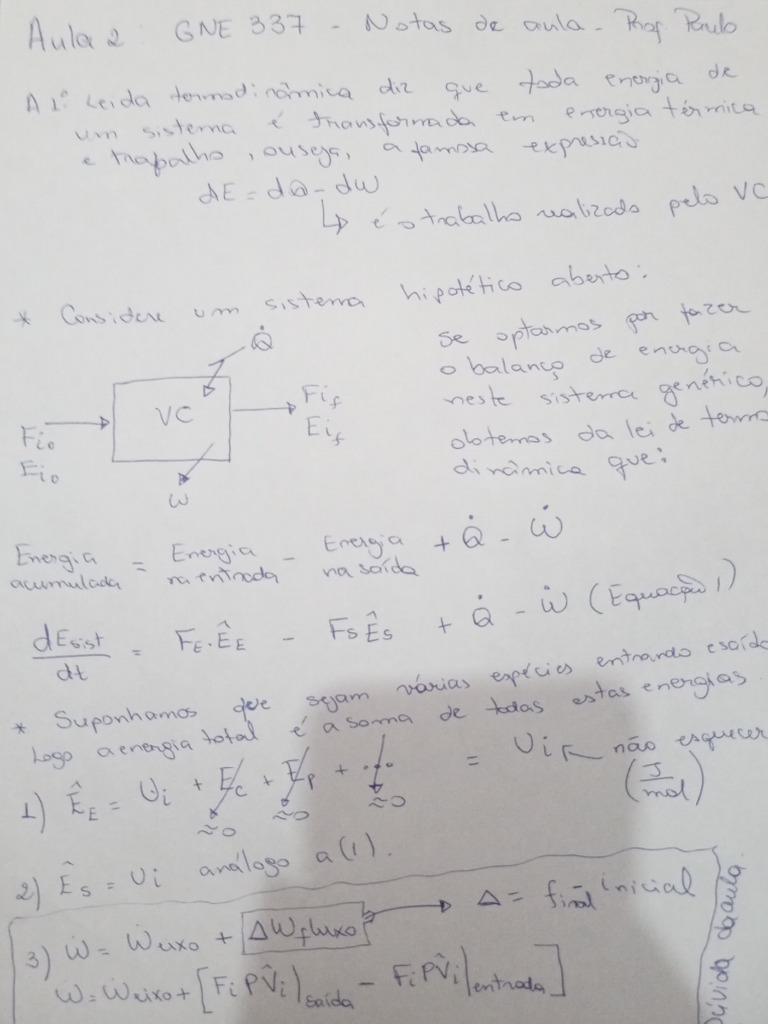 Aula 2: GNE 337 - Notas de aula - Prof. Paulo
A 1ª Lei da termodinâmica diz que toda energia de
um sistema é transformada em energia térmica
e trabalho, ou seja, a famosa expressão
dE = dQ - dW
↳ é o trabalho realizado pelo VC
* Considere um sistema hipotético aberto:
Q̇
VC
Fi₀
Ei₀
Fi_f
Ei_f
W
Se optarmos por fazer
o balanço de energia
neste sistema genérico,
obtemos da lei de termo
dinâmica que:
Energia acumulada = Energia na entrada - Energia na saída + Q̇ - Ẇ
dEsist/dt = F_E.Ê_E - FsÊs + Q̇ - Ẇ (Equação 1)
* Suponhamos que sejam várias espécies entrando e saída
Logo a energia total é a soma de todas estas energias.
1) Ê_E = Ui + Ec + Ep + ... = Ui ↖ não esquecer
≈0 ≈0 ≈0 (J/mol)
2) Ês = Ui análogo a (1).
3) Ẇ = Ẇeixo + ΔWfluxo → Δ = final - inicial
Ẇ = Ẇeixo + [FiPV̂i|saída - FiPV̂i|entrada]
Dúvida da aula.